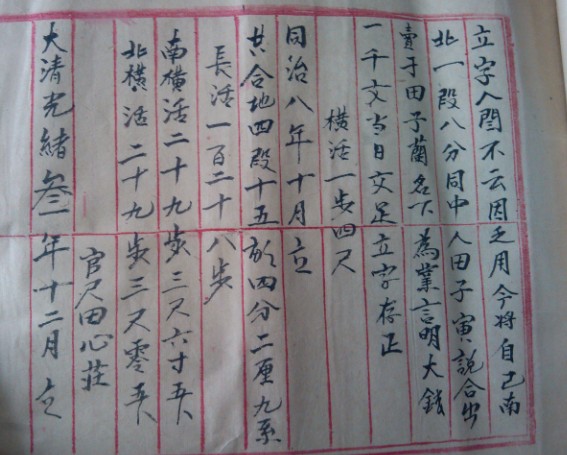 立字人閻不云因乏用今將自己南
北一段八分同中人田子寅說合出
賣于田子蘭名下為業言明大錢
一千文当日交足立字存正
橫活一步四尺
同治八年十月立
共合地四段十五畝四分二厘九系
長活一百二十八步
南橫活二十九步三尺六寸五卜
北橫活二十九步三尺零五卜
官尺田心莊
大清光緒叁年十二月立